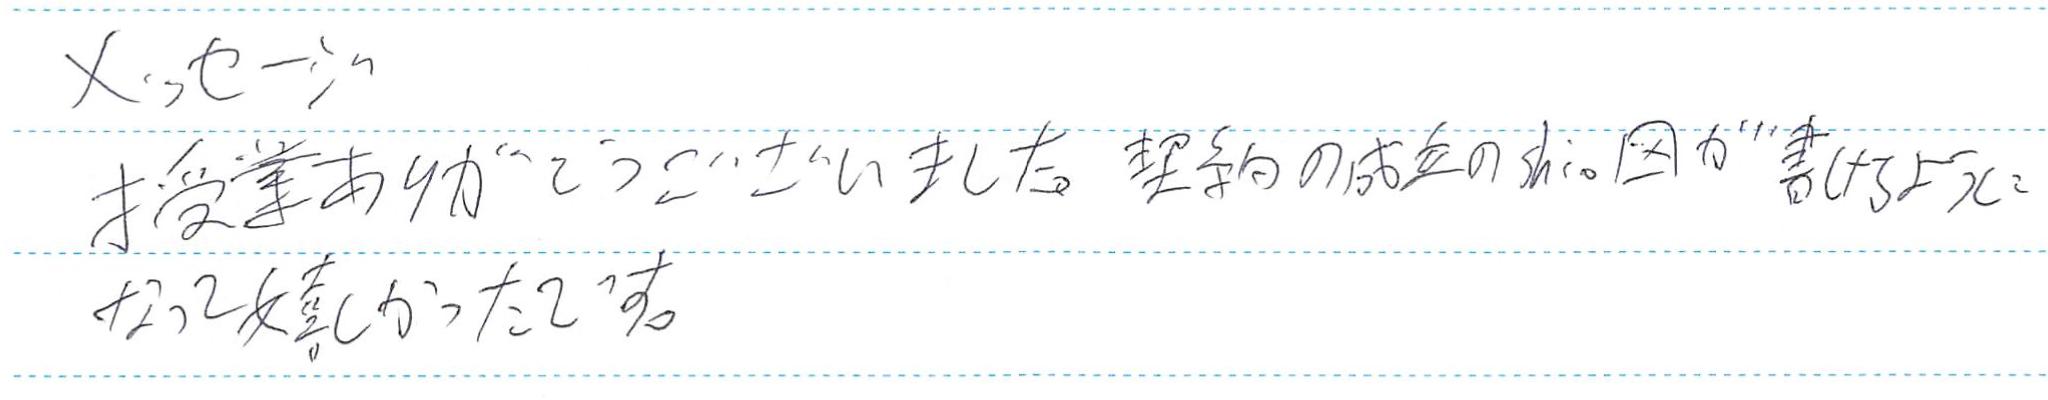 メッセージ
授業ありがとうございました。契約の成立の図が書けるように
なって嬉しかったです。